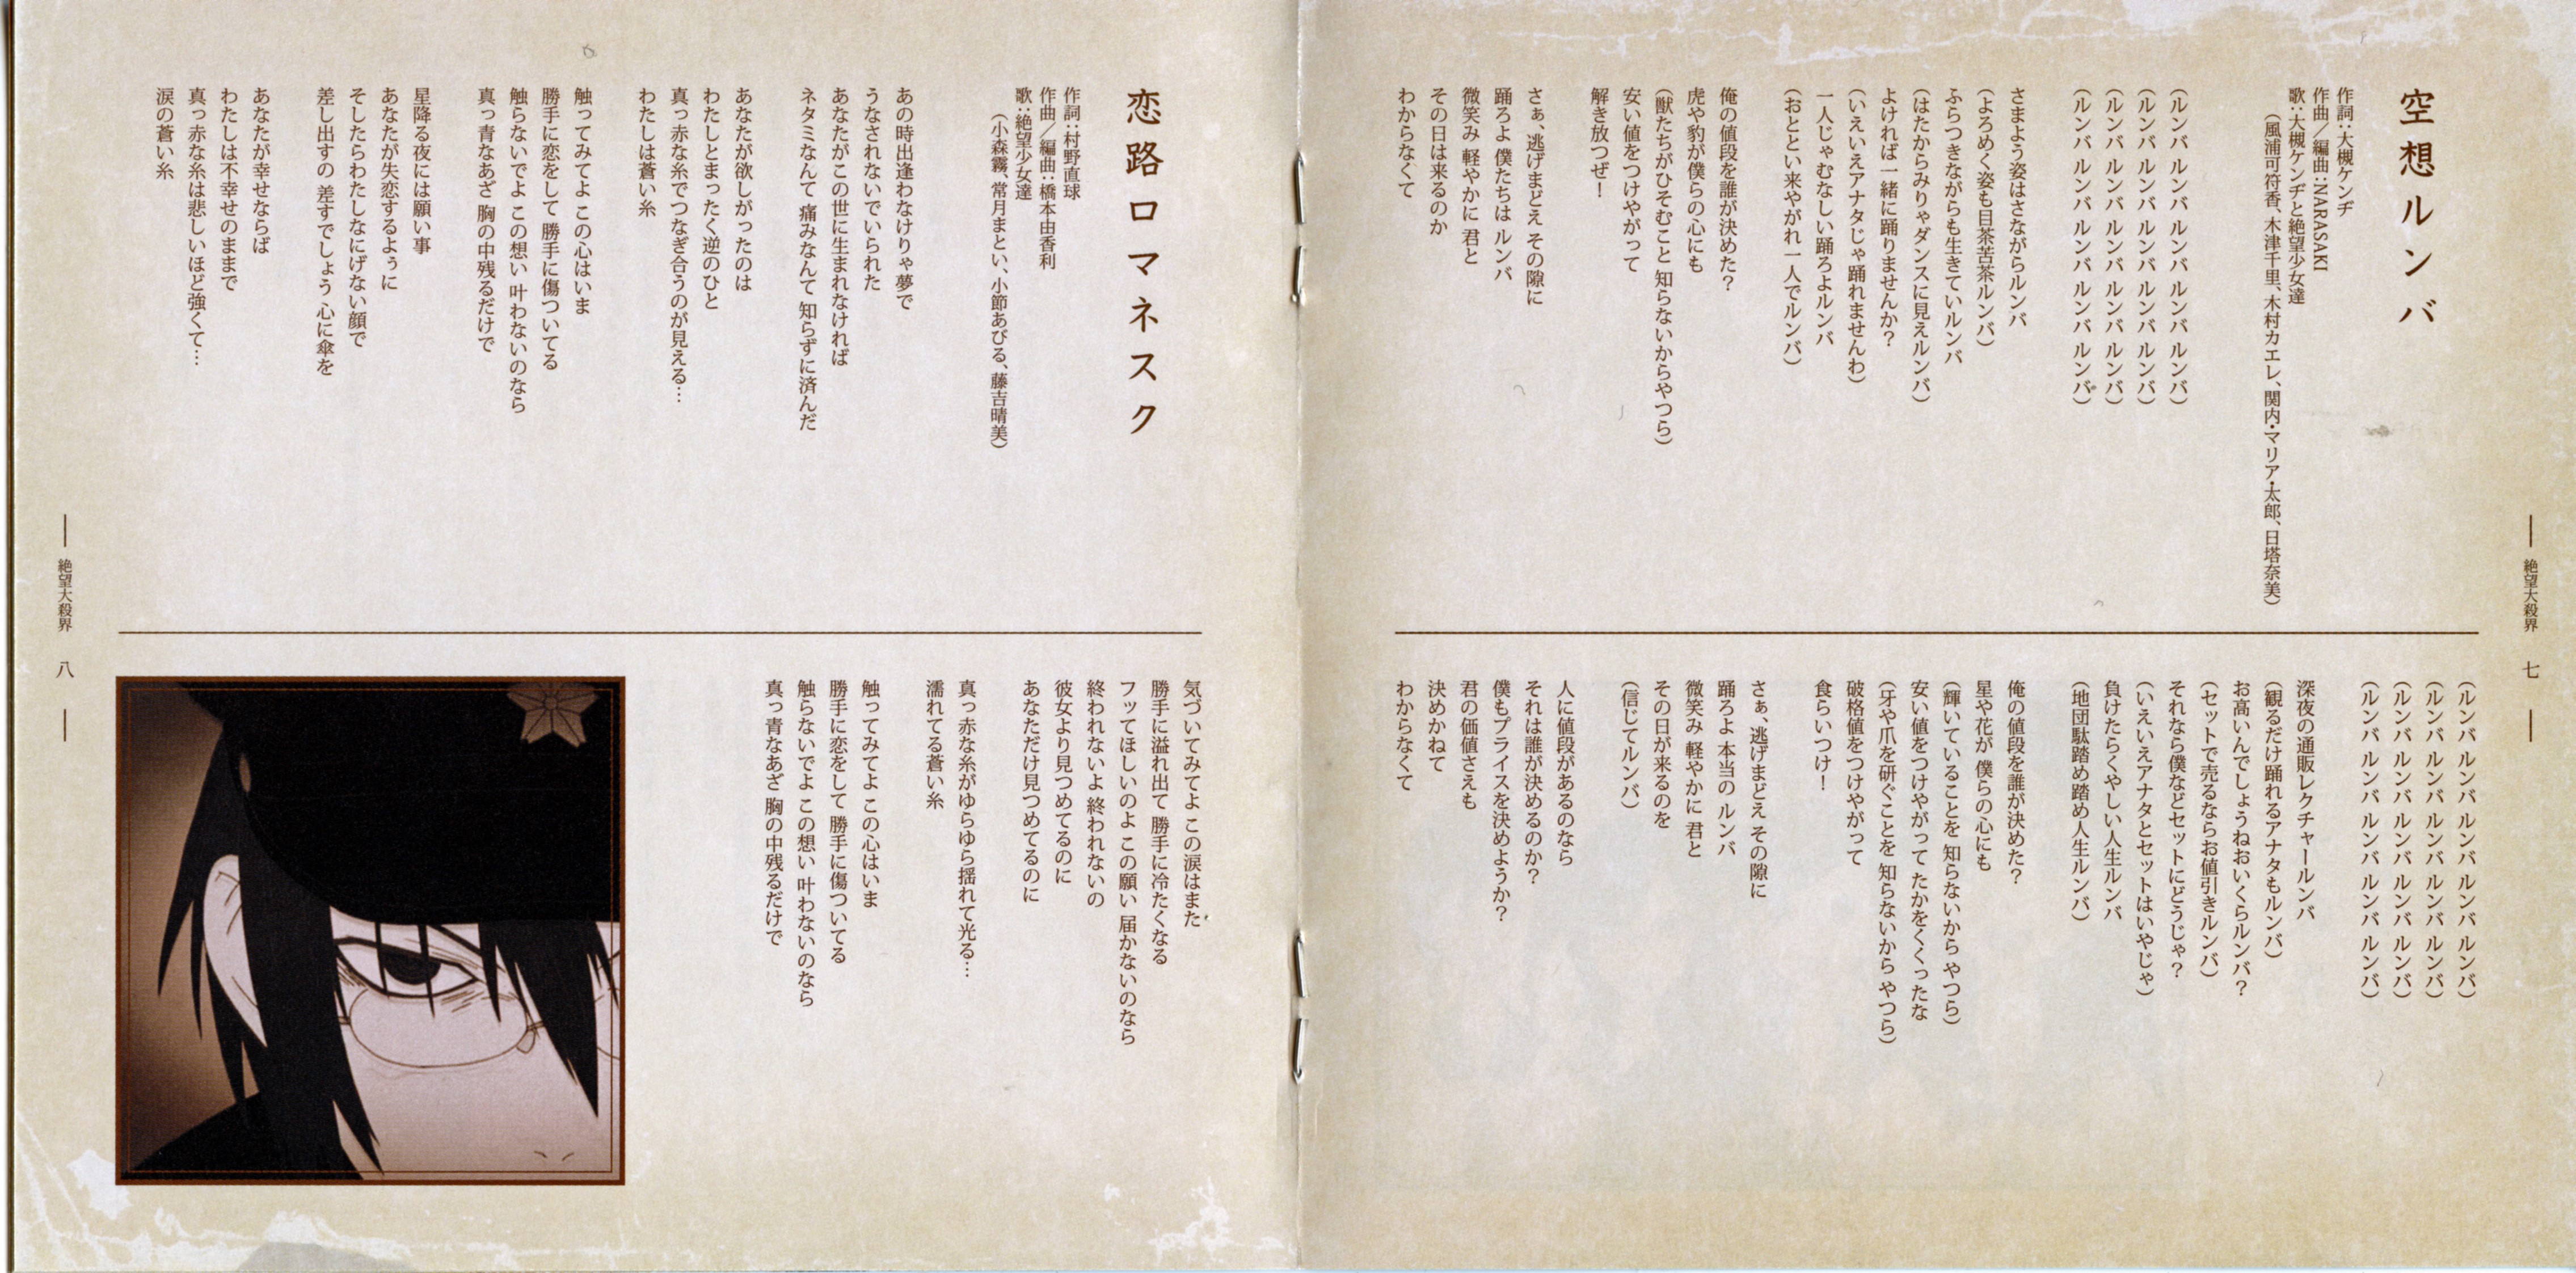 空想ルンバ
作詞：大槻ケンヂ
作曲／編曲：NARASAKI
歌：大槻ケンヂと絶望少女達
（風浦可符香、木津千里、木村カエレ、関内・マリア・太郎、日塔奈美）
（ルンバ ルンバ ルンバ ルンバ ルンバ）
（ルンバ ルンバ ルンバ ルンバ ルンバ）
（ルンバ ルンバ ルンバ ルンバ ルンバ）
（ルンバ ルンバ ルンバ ルンバ ルンバ）
さまよう姿はさながらルンバ
（よろめく姿も目茶苦茶ルンバ）
ふらつきながらも生きていルンバ
（はたからみりゃダンスに見えルンバ）
よければ一緒に踊りませんか？
（いえいえアナタじゃ踊れませんわ）
一人じゃむなしい踊ろよルンバ
（おととい来やがれ一人でルンバ）
俺の値段を誰が決めた？
虎や豹が僕らの心にも
（獣たちがひそむこと 知らないからやつら）
安い値をつけやがって
解き放つぜ！
さぁ、逃げまどえ その隙に
踊ろよ 僕たちは ルンバ
微笑み 軽やかに 君と
その日は来るのか
わからなくて
（ルンバ ルンバ ルンバ ルンバ ルンバ）
（ルンバ ルンバ ルンバ ルンバ ルンバ）
（ルンバ ルンバ ルンバ ルンバ ルンバ）
（ルンバ ルンバ ルンバ ルンバ ルンバ）
深夜の通販レクチャールンバ
（観るだけ踊れるアナタもルンバ）
お高いんでしょうねおいくらルンバ？
（セットで売るならお値引きルンバ）
それなら僕などセットにどうじゃ？
（いえいえアナタとセットはいやじゃ）
負けたらくやしい人生ルンバ
（地団駄踏め踏め人生ルンバ）
俺の値段を誰が決めた？
星や花が 僕らの心にも
（輝いていることを 知らないから やつら）
安い値をつけやがって たかをくくったな
（牙や爪を研ぐことを 知らないから やつら）
破格値をつけやがって
食らいつけ！
さぁ、逃げまどえ その隙に
踊ろよ 本当の ルンバ
微笑み 軽やかに 君と
その日が来るのを
（信じてルンバ）
人に値段があるのなら
それは誰が決めるのか？
僕もプライスを決めようか？
君の価値さえも
決めかねて
わからなくて
絶望大殺界 七
恋路ロマネスク
作詞：村野直球
作曲／編曲：橋本由香利
歌：絶望少女達
（小森霧、常月まとい、小節あびる、藤吉晴美）
あの時出逢わなけりゃ夢で
うなされないでいられた
あなたがこの世に生まれなければ
ネタミなんて 痛みなんて 知らずに済んだ
あなたが欲しがったのは
わたしとまったく逆のひと
真っ赤な糸でつなぎ合うのが見える…
わたしは蒼い糸
触ってみてよ この心はいま
勝手に恋をして 勝手に傷ついてる
触らないでよ この想い 叶わないのなら
真っ青なあざ 胸の中残るだけで
星降る夜には願い事
あなたが失恋するように
そしたらわたしなにげない顔で
差し出すの 差すでしょう 心に傘を
あなたが幸せならば
わたしは不幸せのままで
真っ赤な糸は悲しいほど強くて…
涙の蒼い糸
気づいてみてよ この涙はまた
勝手に溢れ出て 勝手に冷たくなる
フッてほしいのよ この願い 届かないのなら
終われないよ 終われないの
彼女より見つめてるのに
あなただけ見つめてるのに
真っ赤な糸がゆらゆら揺れて光る…
濡れてる蒼い糸
触ってみてよ この心はいま
勝手に恋をして 勝手に傷ついてる
触らないでよ この想い 叶わないのなら
真っ青なあざ 胸の中残るだけで
絶望大殺界 八